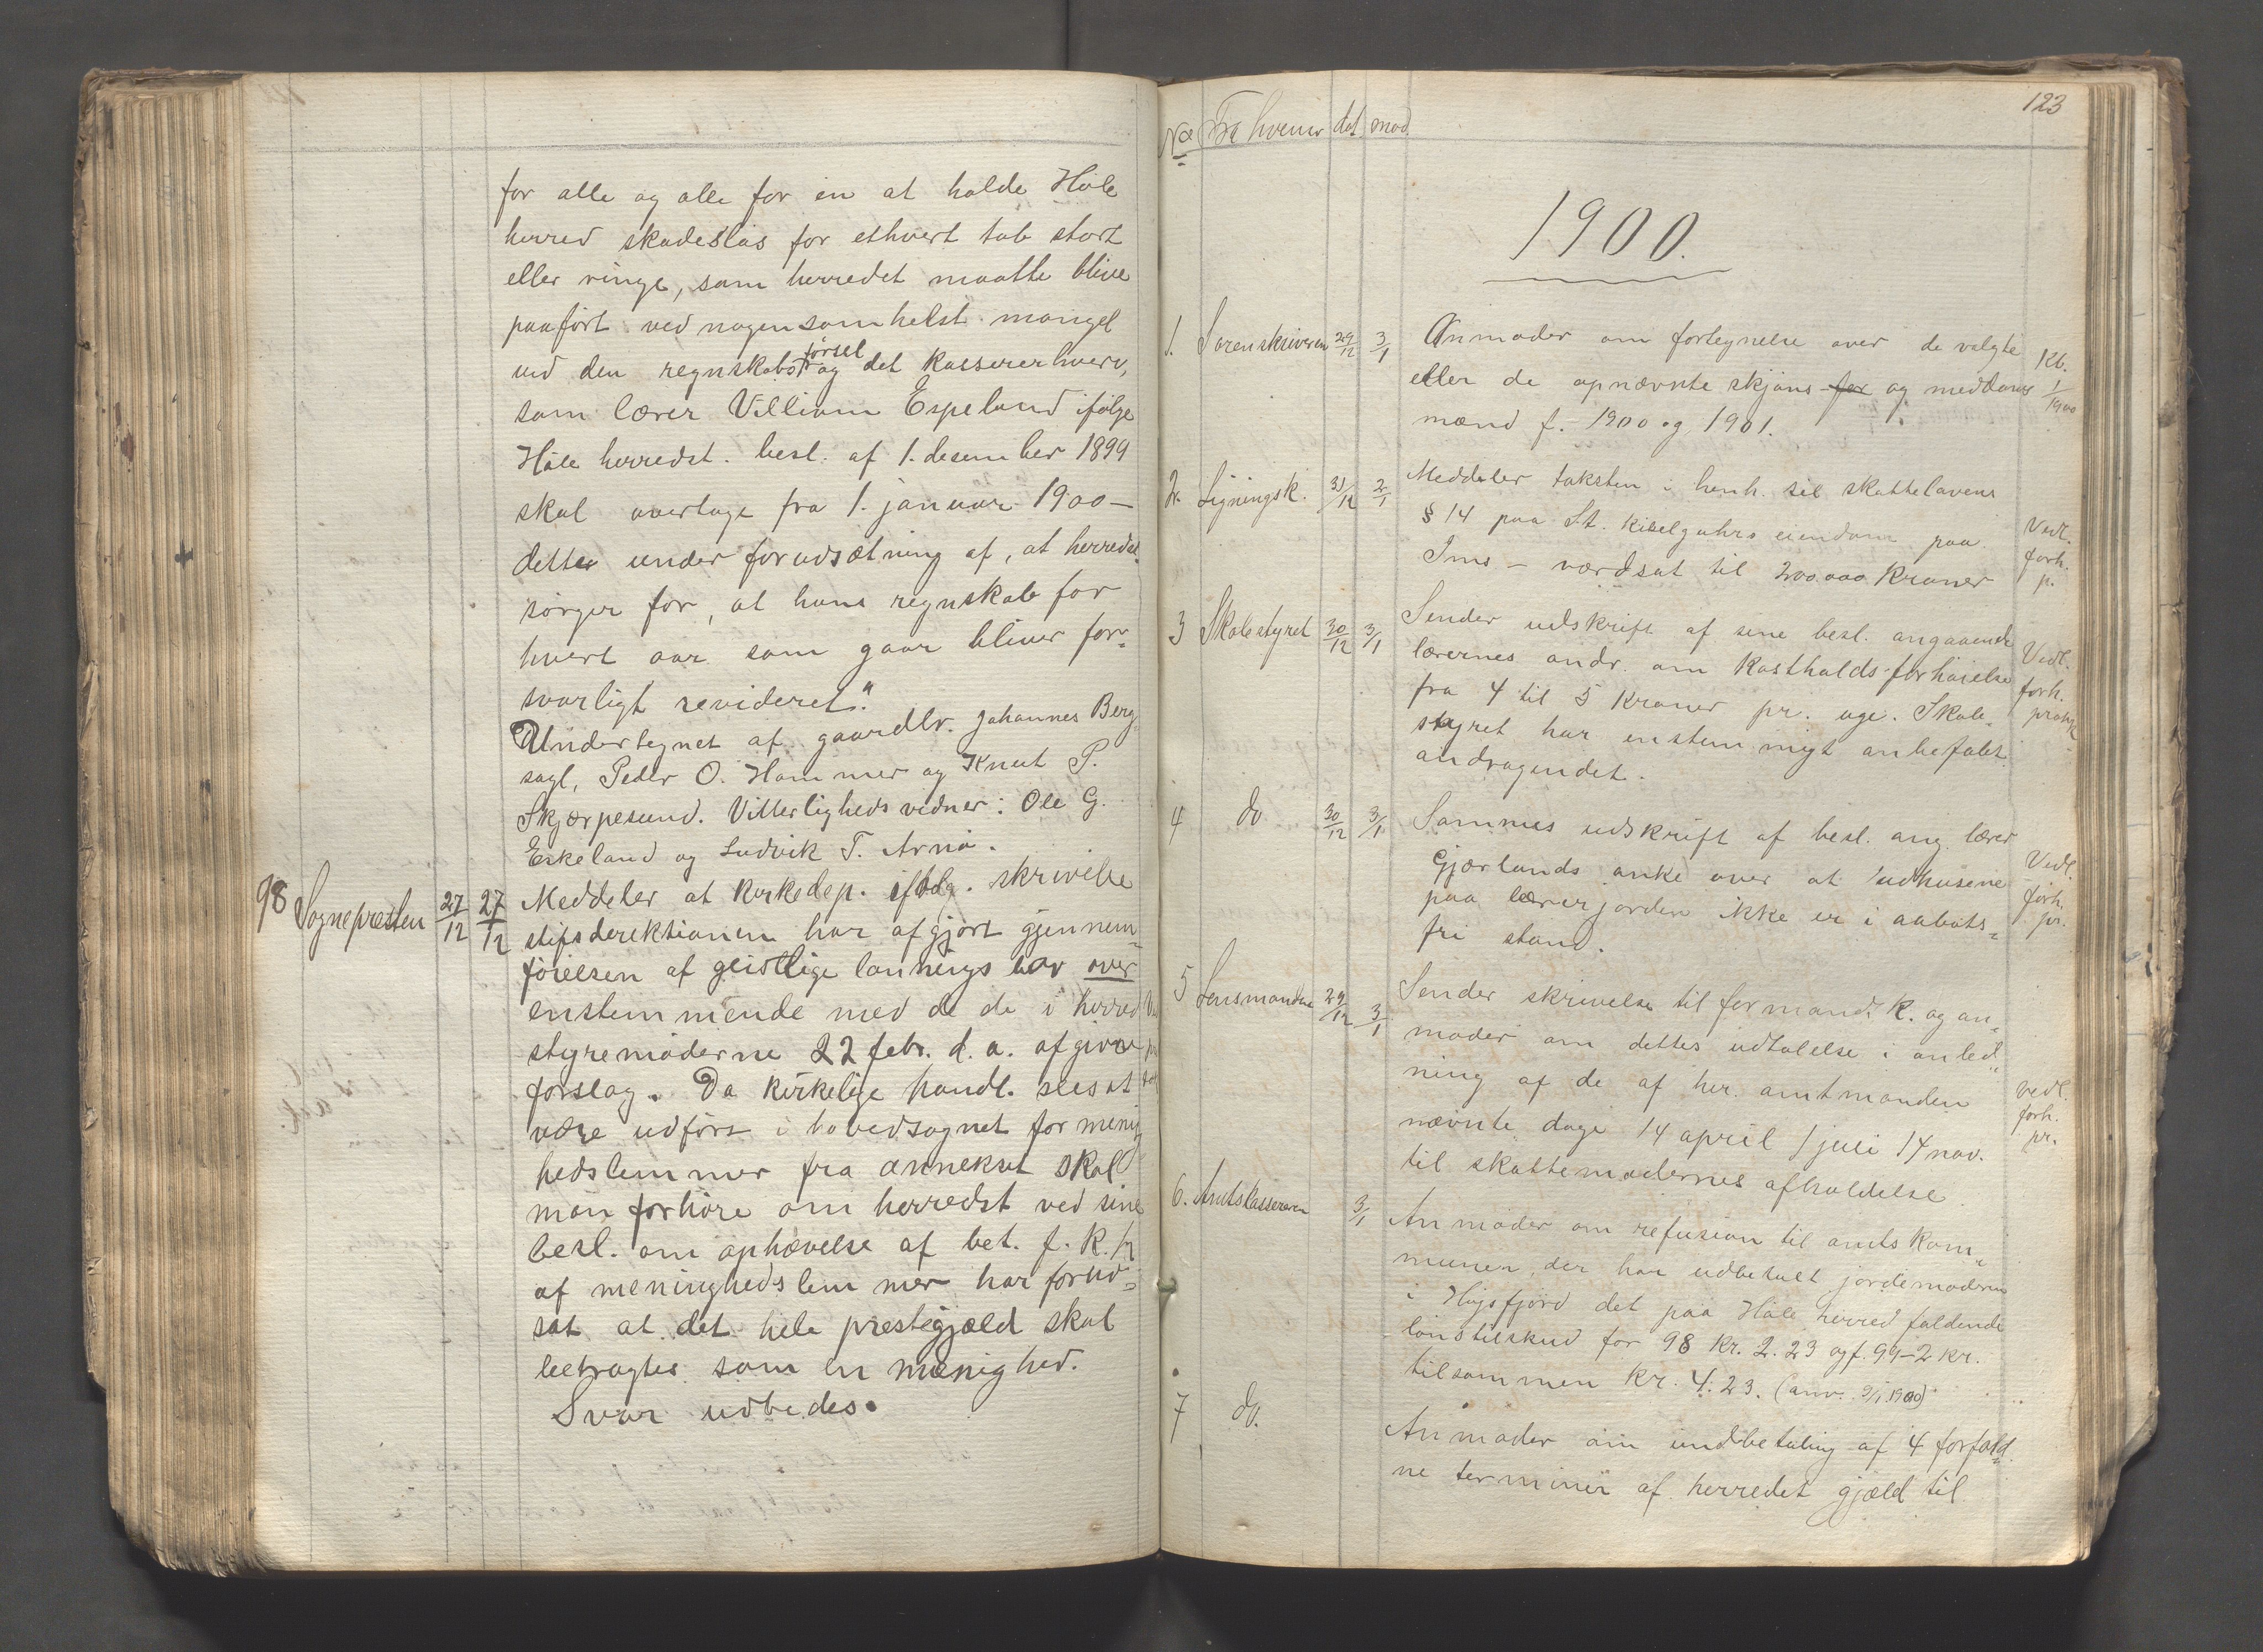 for alle og alle for en at holde Høle
herred skadesløs for ethvert tab stort
eller ringe, som herredet maatte blive
paaført ved nogensomhelst mangel
ved den regnskabsførsel og det kassererhverv,
som lærer Villiam Espeland ifølge
Høle herredst. besl. af 1. desember 1899
skal overtage fra 1. januar 1900 –
dette under forudsætning af, at herredet
sørger for, at hans regnskab for
hvert aar som gaar bliver for-
svarligt revideret."
Undertegnet af gaardbr. Johannes Berg-
sagl, Peder O. Hommer og Knut P.
Skjørpesund. Vitterligheds vidner: Ole G.
Eskeland og Ludvik T. Arnø.
98 Sognepresten 27/12 27/12 Meddeler at Kirkedep. ifølg. skrivelse
stiftsdirektionen har afgjort gjennem-
føielsen af geistlige lønnings lov over
enstemmende med de de i herred
styremøderne 22 febr. d. a. afgivne
forslag. Da Kirkelige handl. sees at
være udført i hovedsognet for menig
hedslemmer fra annekset skal
man forhøre om herredst ved sine
besl. om ophævelse af bet. f. K.
af menighedslemmer har forud-
sat at det hele prestegjæld skal
betragtes som en menighed.
Svar udbedes.
123
No Fra hvem dat. mod.
1900.
1. Sorenskriveren 29/12 3/1 Anmoder om fortegnelse over de valgte
eller de opnævnte skjøns for og meddoms
mænd f. 1900 og 1901.
Kb.
1/1
1900
2. Ligningsk. 31/12 2/1 Meddeler taksten i henh. til skattelovens
§ 14 paa St. Kiselguhrs eiendom paa
Ims – værdsat til 200.000 Kroner
Vedl.
forh.
p.
3 Skolestyret 30/12 3/1 Sender udskrift af sine besl. angaaende
lærernes andr. om Kostholds-forhøielse
fra 4 til 5 Kroner pr. uge. Skole-
styret har enstemmigt anbefalet
andragendet.
Vedl.
forh.
4 do 30/12 3/1 Sammes udskrift af besl. ang. lærer
Gjørlunds anke over at udhusene
paa lærerjorden ikke er i aabots-
fri stand.
Vedl.
forh.
pr.
5 Lensmanden 29/12 3/1 Sender skrivelse til formandsk. og an-
moder om dettes udtalelse i anled-
ning af de af hr. amtmanden
nævnte dage 14 april 1 juli 14 nov.
til skattemødernes afholdelse
Vedl.
forh.
pr.
6. Amtskassereren 3/1 Anmoder om refusion til amtskom-
munen, der har udbetalt jordemoderen
i Høgsfjord det paa Høle herred faldende
lønstilskud for 98 Kr. 2.23 og f. 99 – 2 kr.
tilsammen Kr. 4.23. (anv. 9/1 1900)
7 do. Anmoder om indbetaling af 4 forfald-
ne terminer af herredet gjæld til